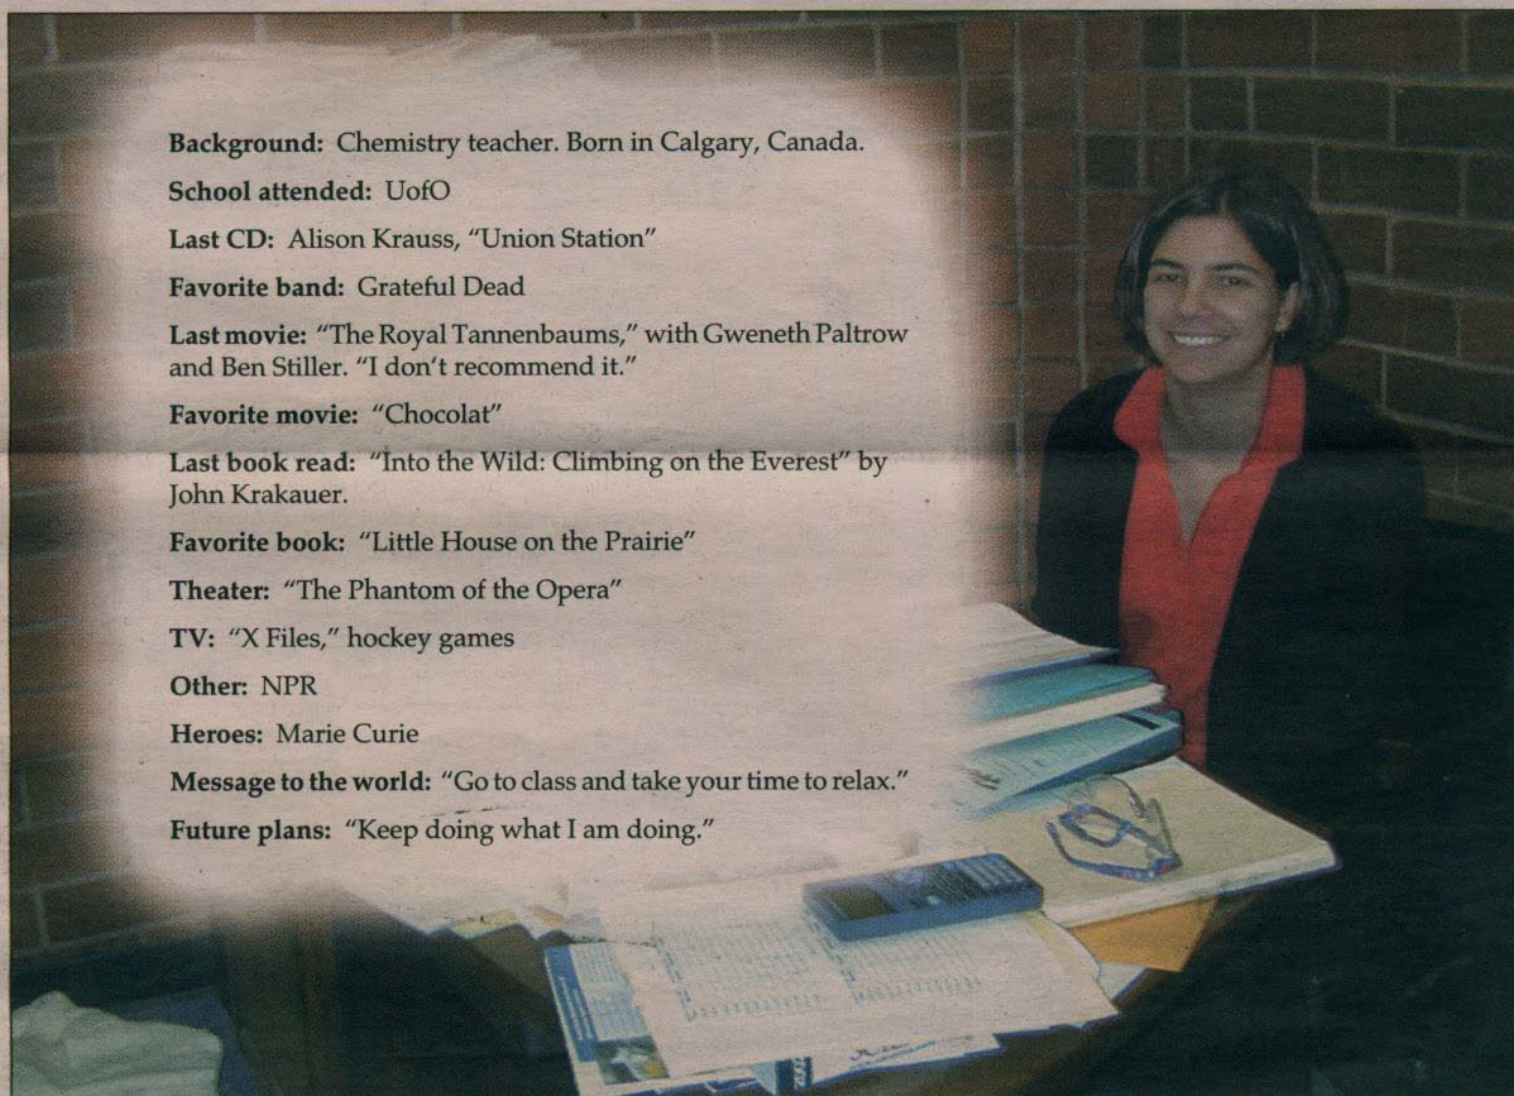 Background: Chemistry teacher. Born in Calgary, Canada.
School attended: UofO
Last CD: Alison Krauss, “Union Station”
Favorite band: Grateful Dead
Last movie: “The Royal Tannenbaums,” with Gweneth Paltrow
and Ben Stiller. “I don’t recommend it.”
Favorite movie: “Chocolat”
Last book read: “Into the Wild: Climbing on the Everest” by
John Krakauer.
Favorite book: “Little House on the Prairie”
Theater: “The Phantom of the Opera”
TV: “X Files,” hockey games
Other: NPR
Heroes: Marie Curie
Message to the world: “Go to class and take your time to relax.”
Future plans: “Keep doing what I am doing.”